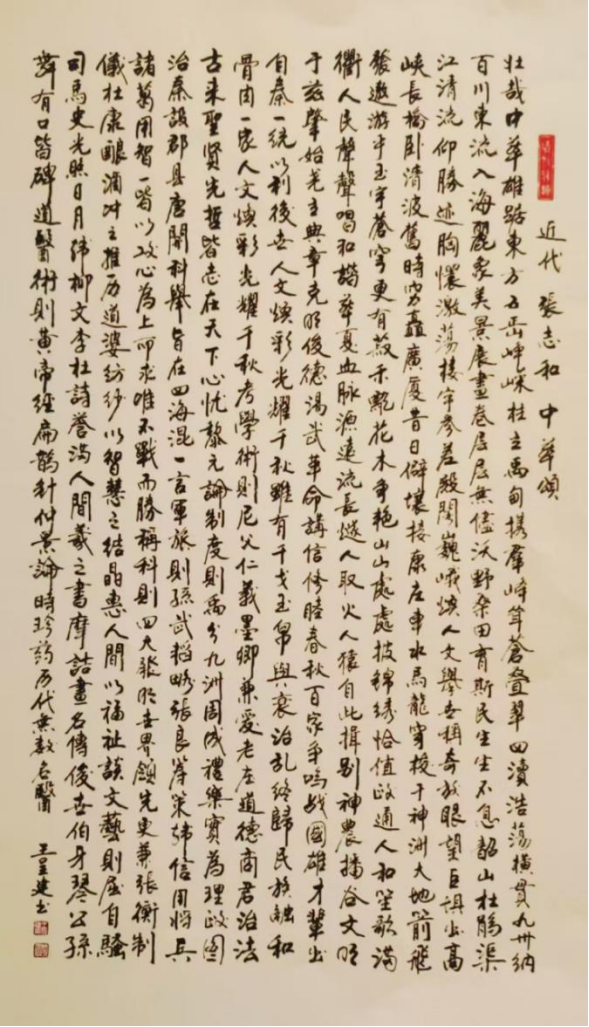 近代 張志和 中華頌
壯哉中華雄踞東方五岳崢嶸柱立禹甸携群峰聳蒼疊翠四瀆浩蕩橫貫九州納
百川東流入海麗象美景展畫卷層層無儘沃野桑田育斯民生生不息韶山杜鵑渠
江清流仰勝迹胸懷激蕩樓宇參差殿閣巍峨煥人文舉世稱奇放眼望巨埧出高
峽長榆卧清波舊時穷矗廣厦昔日僻壤接康庄車水馬龍穿梭于神洲大地箭飛
發遨游乎玉宇蒼穹更有嘉禾艷花木争艳山山處處披錦绣恰值政通人和笙歌滿
衢人民聲聲唱和諧華夏血脉源遠流長燧人取火人猿自此揖别神農播谷文明
于兹肇始堯立典章克明俊德湯武革命講信修睦春秋百家争鳴战國雄才輩出
自秦一統以利後世人文煥彩光耀千秋雖有干戈玉帛興衰治乱終歸民族融和
骨肉一家人文煥彩光耀千秋考學術則尼父仁義墨卿兼爱老庄道德商君治法
古来聖賢先哲皆志在天下心忧黎元論制度則禹分九洲周成禮樂實為理政圖
治秦設郡县唐開科舉旨在四海混一言軍旅則孫武韜略張良籌策韓信用將兵
諸葛用智一皆以攻心為上叩求唯不戰而勝稱科則四大發明世界領先更兼張衡制
儀杜康釀酒冲之推历道婆紡紗以智慧之结晶惠人間以福祉談文藝則屈自騷
司馬史光照日月韩柳文李杜詩譽满人間羲之書摩詰畫名傳後世伯牙琴公孫
舞有口皆碑道醫術則黄帝經扁鵲針仲景論時珍药历代無數名醫